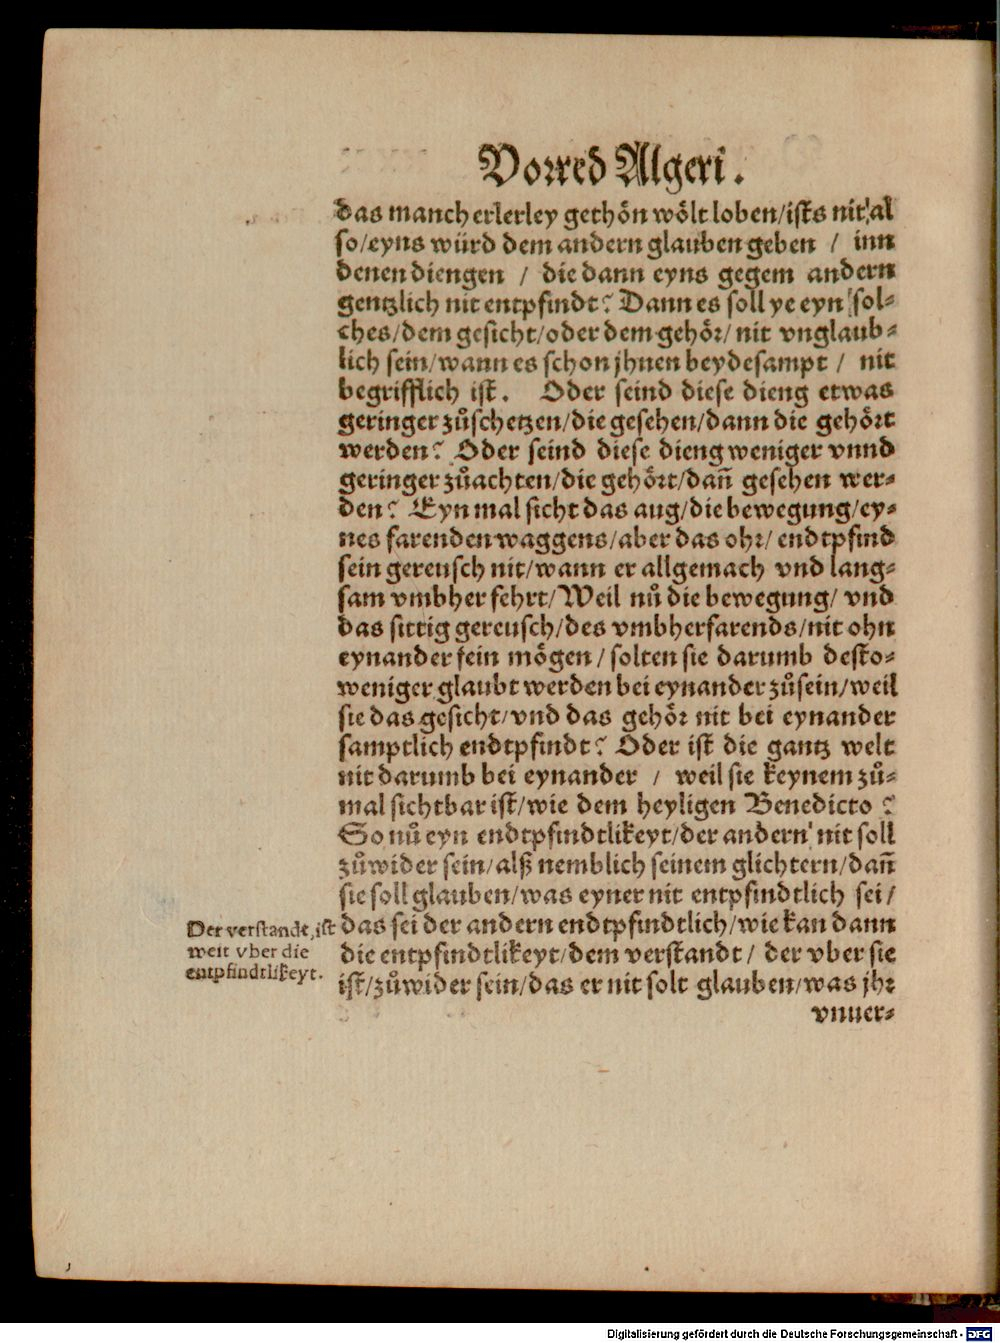 Vorred Algeri.
das mancherlerley gethön wölt loben/ists nit al
so/eyns würd dem andern glauben geben / inn
denen diengen / die dann eyns gegem andern
gentzlich nit entpfindt? Dann es soll ye eyn sol-
ches/dem gesicht/oder dem gehör/ nit vnglaub-
lich sein/wann es schon jhnen beydesampt / nit
begrifflich ist. Oder seind diese dieng etwas
geringer zůschetzen/die gesehen/dann die gehört
werden? Oder seind diese dieng weniger vnnd
geringer zůachten/die gehört/dañ gesehen wer-
den? Eyn mal sicht das aug/die bewegung/ey-
nes farenden waggens/aber das ohr/ endtpfind
sein gereusch nit/wann er allgemach vnd lang-
sam vmbher fehrt/Weil nů die bewegung/ vnd
das sittig gereusch/des vmbherfarends/nit ohn
eynander sein mögen/ solten sie darumb desto-
weniger glaubt werden bei eynander zůsein/weil
sie das gesicht/vnd das gehör nit bei eynander
samptlich endtpfindt? Oder ist die gantz welt
nit darumb bei eynander / weil sie keynem zů-
mal sichtbar ist/wie dem heyligen Benedicto ?
So nů eyn endtpfindtlikeyt/der andern nit soll
zůwider sein/alß nemblich seinem glichtern/dañ
sie soll glauben/was eyner nit entpfindtlich sei/
Der verstandt, ist
weit vber die
entpfindtlikeyt.
das sei der andern endtpfindtlich/wie kan dann
die entpfindtlikeyt/dem verstandt/ der vber sie
ist/zůwider sein/das er nit solt glauben/was jhr
vnuer-
Digitalisierung gefördert durch die Deutsche Forschungsgemeinschaft - DFG